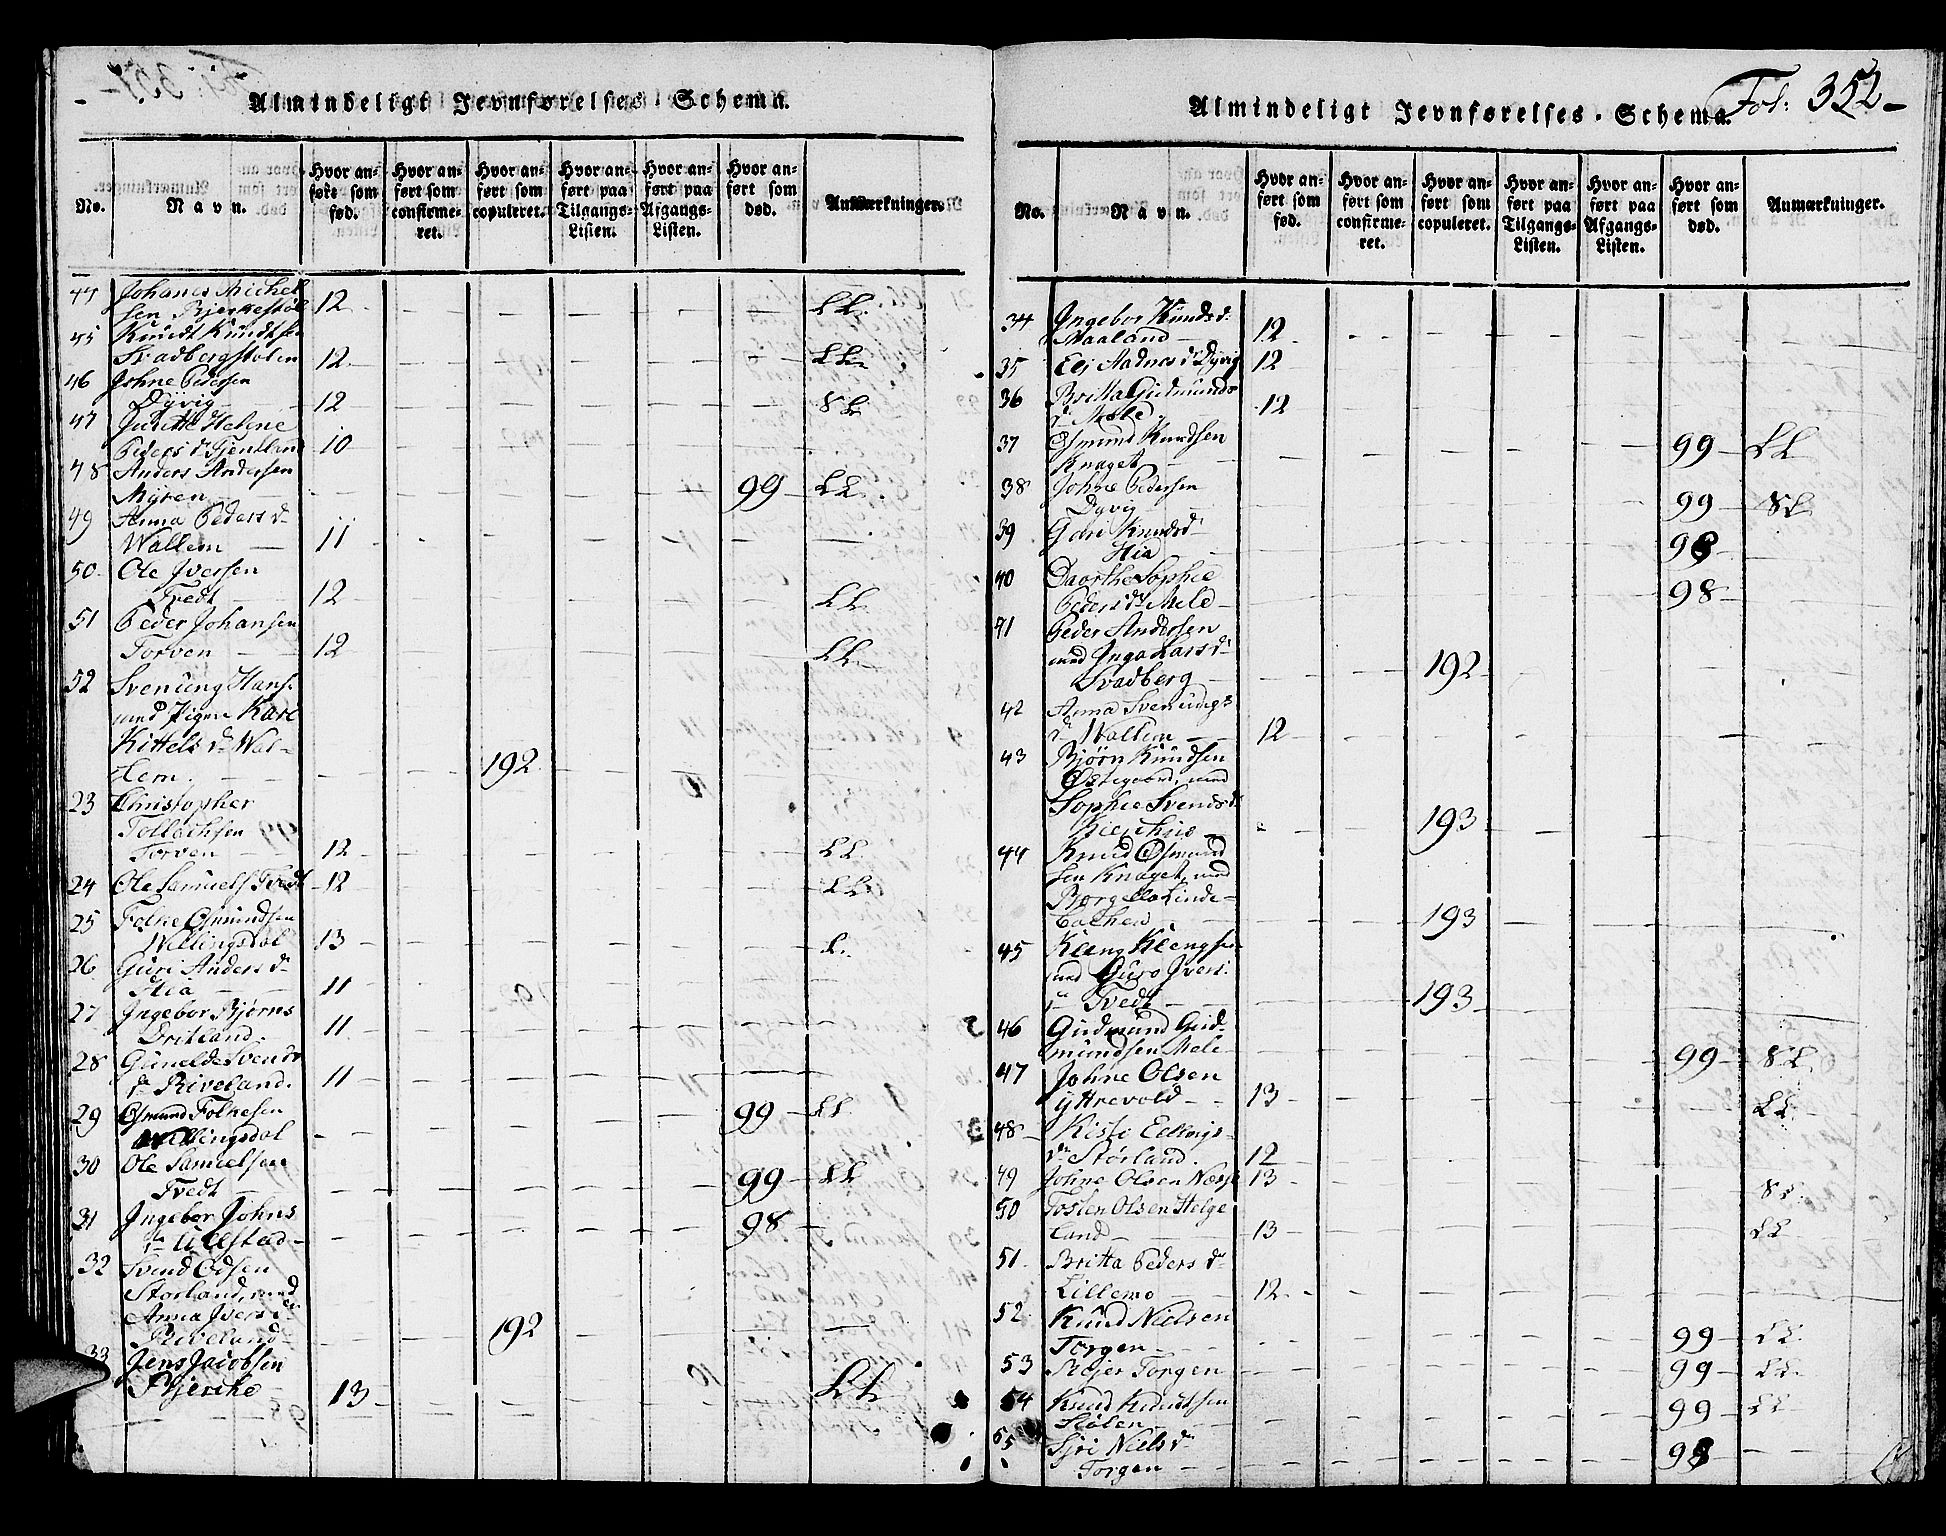 Almindeligt Jevnførelses Schema.
No.
Navn.
Hvor an-
ført som
fød.
Hvor an-
ført som
confirme-
ret.
Hvor an-
ført som
copuleret.
Hvor an-
ført paa
Tilgangs-
Listen.
Hvor an-
ført paa
Afgangs-
Listen.
Hvor an-
ført som
død.
Anmærkninger.
44 Johanes Michel
sen Bjerkestöl 12 LL.
45 Knudt Knudtsen
Svadbergstolen 12 LL.
46 Johne Pedersen
Dyvig 12 SL
47 Juritte Helene
Peders d. Tjentland 10
48 Anders Andersen
Myren 99 LL.
49 Anna Peders d.
Wallem 11
50. Ole Iversen
Tvedt 12 LL
51 Peder Johansen
Torven 12 LL.
52 Svenung Hans.
med Pigen Kari
Kittels d. Wal-
lem. 192
23 Christopher
Tollachsen
Torven 12 LL
24 Ole Samuels Tvedt 12 LL.
25 Folke Osmundsen
Wellingsdal 13 L.
26 Guri Anders d.
Hia 11
27 Ingebor Bjørns
Britland. 11
28 Gunelde Svends
d. Riveland. 11
29 Osmund Folkesen
Wellingsdal 99 LL
30 Ole Samuelsen
Tvedt 99 LL
31 Ingebor Johns
d. Ulstad 98
32 Svend Edsen
Storland, med
Anna Ivers d.
Riveland 192
33 Jens Jacobsen
Bjerche 13 LL
Almindeligt Jevnførelses-Schema. Fol: 352
No.
Navn.
Hvor an-
ført som
fød.
Hvor an-
ført som
confirme-
ret.
Hvor an-
ført som
copuleret.
Hvor an-
ført paa
Tilgangs-
Listen.
Hvor an-
ført paa
Afgangs-
Listen.
Hvor an-
ført som
død.
Anmærkninger.
34 Ingebor Knuds d.
Maaland 12
35 Elj Aadnes d. Dyvig 12
36 Britta Gudmunds
d. Mele. 12
37 Osmund Knudsen
Knaget 99 LL
38 Johne Pedersen
Dyvig 99 SL
39 Gori Knuds d.
Hia 98
40 Daorthe Sophie
Peders d. Mele 98
41 Peder Andersen
med Inga Lars d.
Svadberg 192
42 Anna Svenungs
d. Wallem 12
43 Bjørn Knudsen
Østegaard, med
Sophie Svends d.
193
44 Knud Osmund
sen Knaget, med
Borgella Linde-
bachen 193
45 Kleng Klengsen
med Guro Ivers.
d. Tvedt 193
46 Gudmund Gud-
mundsen Mele 99 SL
47 Johne Olsen
Yttrevold 13 LL
48 Kisti Ellings
d. Storland. 12
49 Johne Olsen Næsse 13 SL
50 Tosten Olsen Helge
land 13 LL
51. Britta Peders d.
Lillemo 12
52 Knud Nielsen
Torgen 99 LL
53 Rejer Torgen 99 LL
54 Knud Knudtsen
Stølen 99 LL
55 Sjri Niels d.
Torgen 98